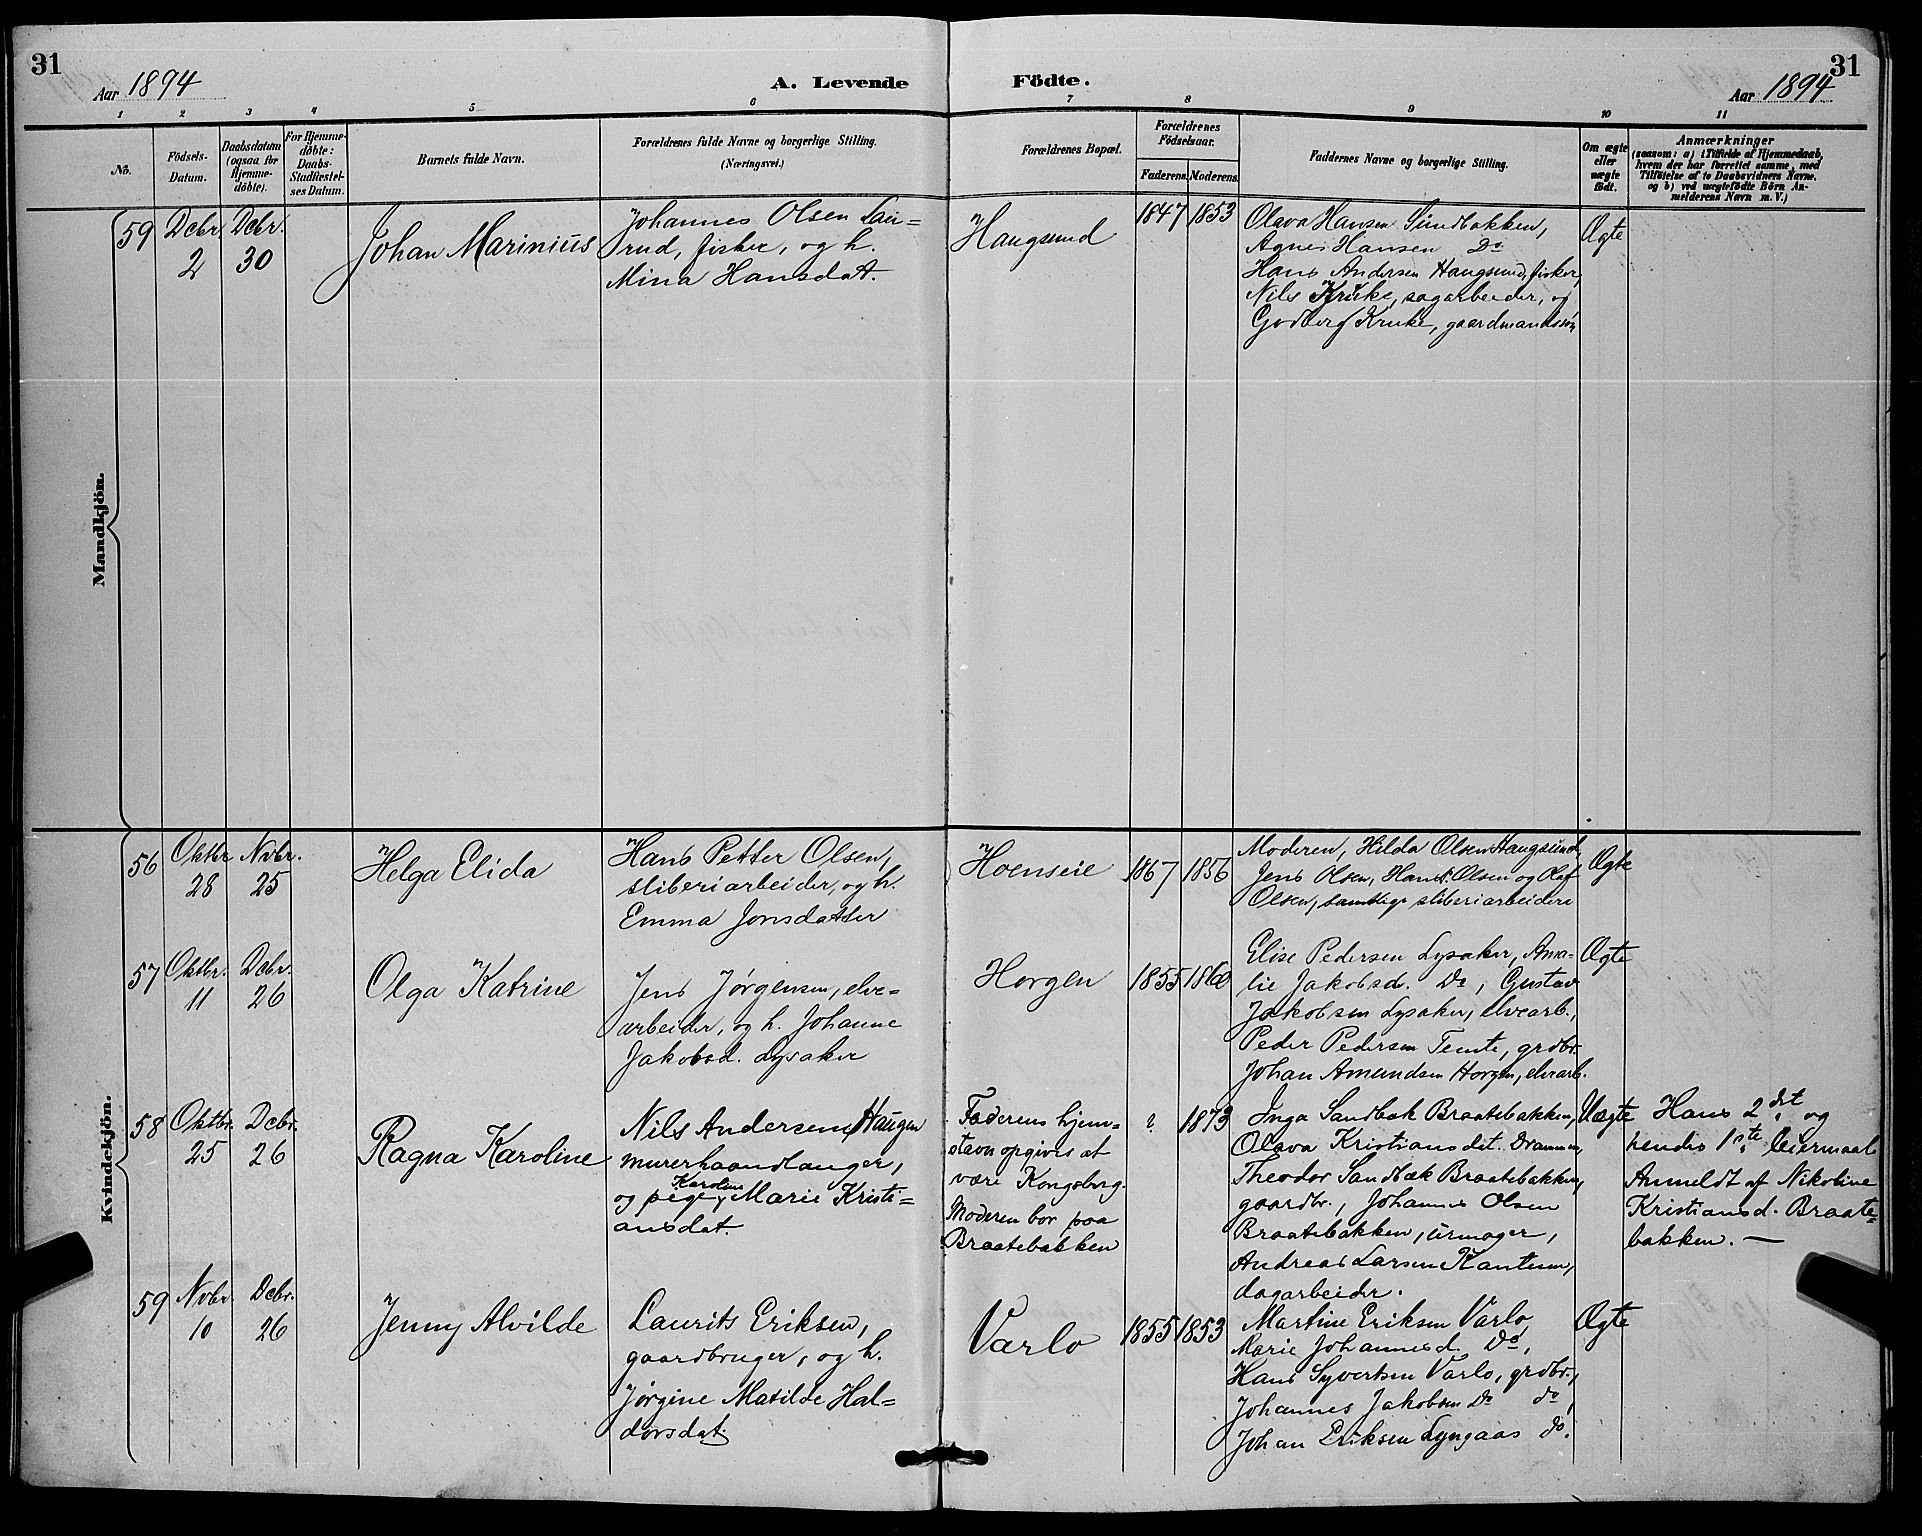 31
Aar 1894
A. Levende
Födte.
31
Aar 1894
1 2 3 4 5 6 7 8 9 10 11
No.
Födsels-
Datum.
Daabsdatum
(ogsaa for
Hjemme-
döbte).
For Hjemme-
döbte:
Daabs-
Stadfæstel-
ses Datum.
Barnets fulde Navn.
Forældrenes fulde Navne og borgerlige Stilling.
(Næringsvei.)
Forældrenes Bopæl.
Forældrenes
Födselsaar.
Faderens. Moderens.
Faddernes Navne og borgerlige Stilling.
Om ægte
eller
uægte
født.
Anmærkninger
(saasom: a) i Tilfælde af Hjemmedaab,
hvem der har forrettet samme, med
Tilföielse af to Daabsvidners Navne,
og b) ved uægtefödte Börn An-
melderens Navn m. V.)
Mandkjön.
59
Dcbr.
2
Dcbr.
30
Johan Marinius
Johannes Olsen Lau-
rud, fisker, og h.
Mina Hansdat.
Haugsund
1847 1853
Olava Hansen Sundbakken,
Agnes Hansen Do
Hans Andersen Haugsund, fisker,
Nils Kruke, sagarbeider, og
Godberg Kruke, gaardmandssøn
Ægte
Kvindekjön.
56
Oktbr
28
Nvbr.
25
Helga Elida
Hans Petter Olsen,
sliberiarbeider, og h.
Emma Jonsdatter
Hoenseie
1867 1856
Moderen, Hilda Olsen Haugsund,
Jens Olsen, Hans Olsen og Olaf
Olsen, samtlige sliberiarbeidere
Ægte
57
Oktbr.
11
Dcbr.
26
Olga Katrine
Jens Jørgensen, elve-
arbeider, og h. Johanne
Jakobsd. Lysaker
Horgen
1855 1860
Elise Pedersen Lysaker, Ama-
lie Jakobsd. Do, Gustav
Jakobsen Lysaker, elvearb.,
Peder Pedersen Temte, grdbr.
Johan Amundsen Horgen, elvearb.
Ægte
58
Oktbr.
25
Dcbr.
26
Ragna Karoline
Nils Andersen Haugen
murerhaandlanger,
Karoline
og pige Marie Kristi-
ansdat.
Faderens hjem-
stavn opgives at
være Kongsberg.
Moderen bor paa
Braatebakken
? 1873
Inga Sandbæk Braatebakken,
Olava Kristiansdat. Drammen,
Theodor Sandbæk Braatebakken,
gaardbr., Johannes Olsen
Braatebakken, urmager,
Andreas Larsen Kantum,
dagarbeider.
Uægte
Hans 2det og
hendes 1ste leiermaal
Anmeldt af Nikoline
Kristiansd. Braate-
bakken. —
59
Nvbr.
10
Dcbr.
26
Jenny Alvilde
Laurits Eriksen,
gaardbruger, og h.
Jørgine Matilde Hal-
dorsdat.
Varlo
1855 1853
Martine Eriksen Varlo,
Marie Johannesd. Do,
Hans Syvertsen Varlo, grdbr.,
Johannes Jakobsen Do do,
Johan Eriksen Lyngaas do.
Ægte